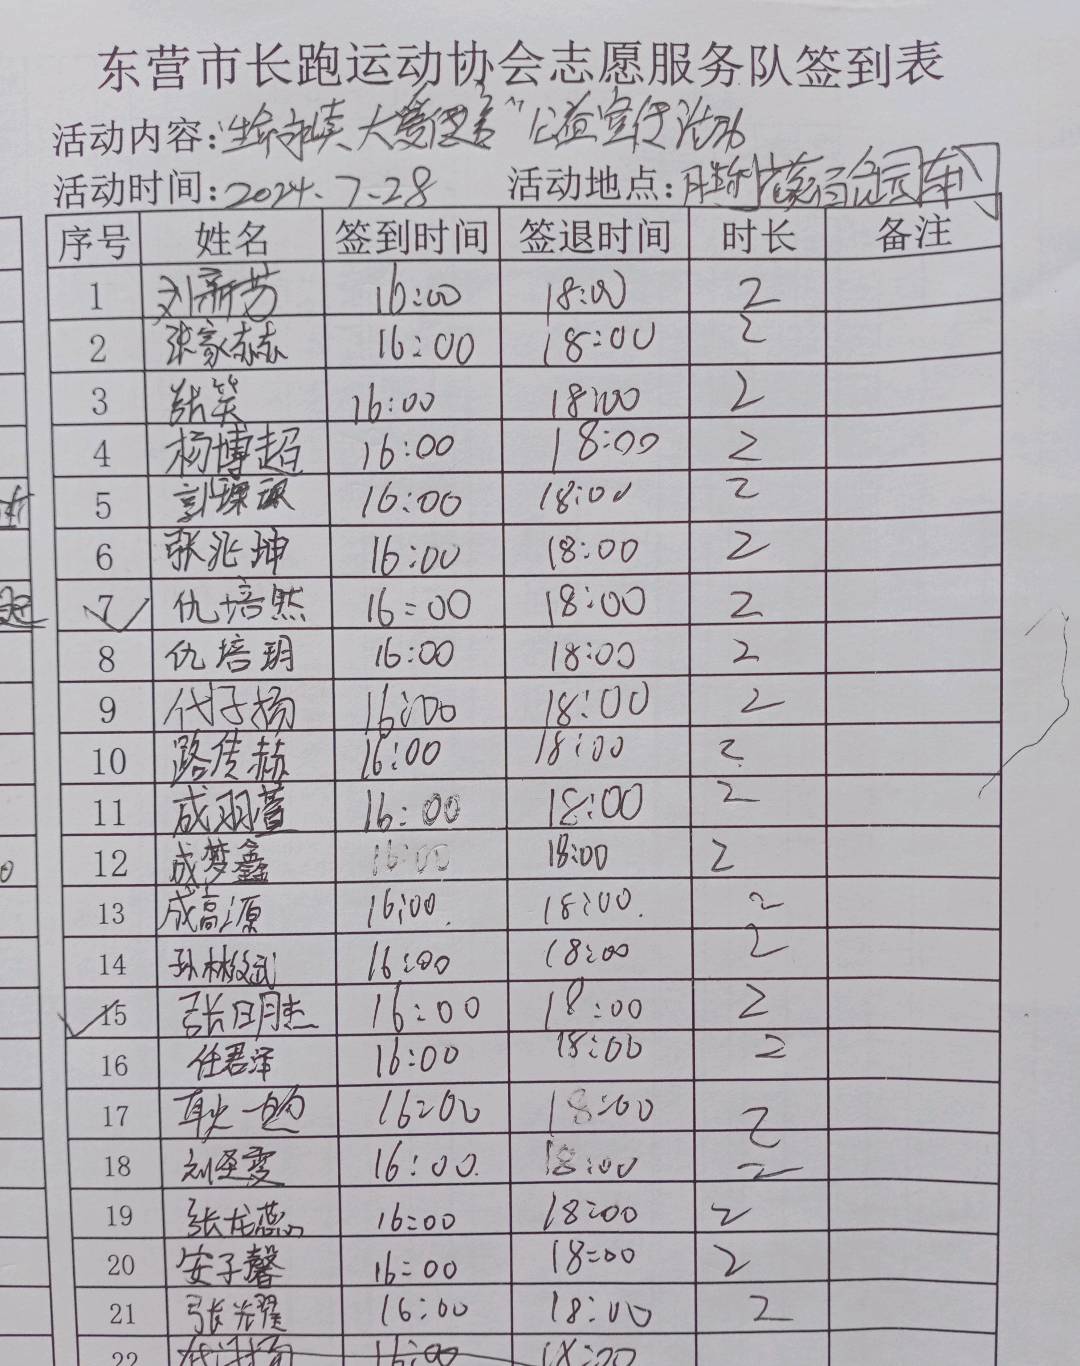 东营市长跑运动协会志愿服务队签到表
活动内容:"生命永续 大爱传善"公益宣传活动
活动时间:2024.7.28 活动地点:胜利 百合园东门
序号 姓名 签到时间 签退时间 时长 备注
1 刘新芳 16:00 18:00 2
2 张家赫 16:00 18:00 2
3 张笑 16:00 18:00 2
4 杨博超 16:00 18:00 2
5 16:00 18:00 2
6 张兆坤 16:00 18:00 2
7 仇培然 16:00 18:00 2
8 仇培玥 16:00 18:00 2
9 代子扬 16:00 18:00 2
10 路传赫 16:00 18:00 2
11 成羽萱 16:00 18:00 2
12 成梦鑫 16:00 18:00 2
13 成高源 16:00. 18:00. 2
14 孙林 16:00 18:00 2
15 张明杰 16:00 18:00 2
16 任君泽 16:00 18:00 2
17 耿一 16:00 18:00 2
18 刘 雯 16:00. 18:00 2
19 张龙 16:00 18:00 2
20 安子馨 16:00 18:00 2
21 张光耀 16:00 18:00 2
22 16:00 18:00